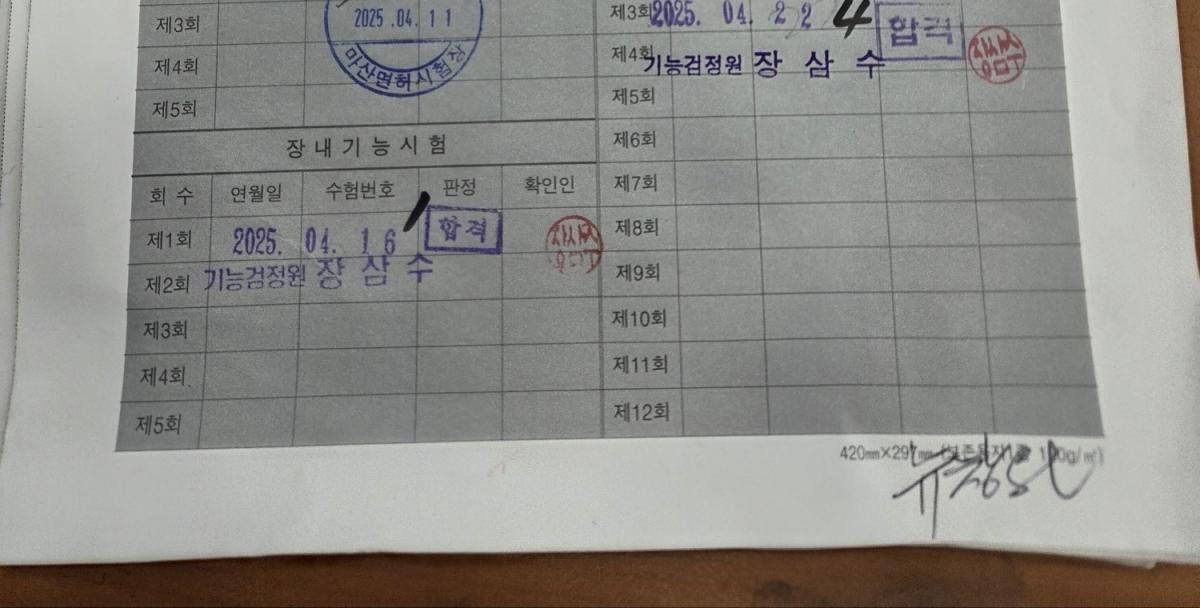 제3회
2025.04.11
제4회
마산면허시험장
제5회
장내기능시험
회 수 연월일 수험번호 판정 확인인
제1회 2025. 04. 16 1 합격
제2회 기능검정원 장 삼 수
제3회
제4회
제5회
제3회 2025. 04. 22 4 합격
제4회 기능검정원 장 삼 수
제5회
제6회
제7회
제8회
제9회
제10회
제11회
제12회
420㎜×297㎜